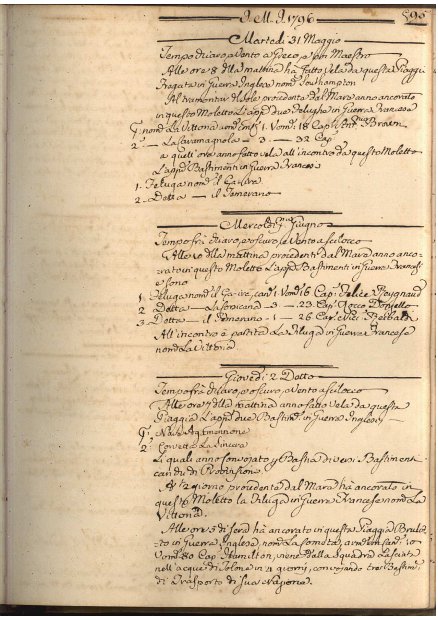 J. M. J. 1796
Martedi 31 Maggio
Tempo chiaro, a Vento a Greco, e poi Maestro
Alle ore 8 della mattina ha fatto Vela da questa Piaggia
Fragata in Guerra Inglese nom.ta Southampton
Al tramontar del Sole procedente dal Mare anno ancorato
in questo Moletto L'app.e due Felughe in Guerra Francese
nom.ta La Vittoria 1 Vom.i 18 Cap. Brown
2. La Cavamagnola - 3 - 32 Cap.
a quell'ore anno fatto vela all'incontro da questo Moletto
L'app.e Bastimenti in Guerra Francese
1. Feluga nom.ta il Ga-ira
2. Detta - il Temerario
Mercoldi p.mo Giugno
Tempo fra chiaro, e oscuro, e Vento a Scilocco
Alle 10 della mattina procedenti dal Mare anno anco-
rato in questo Moletto L'app.e Bastimenti in Guerra Francesi
e sono
1. Feluga nom.ta il Ga-ira, can.i 1 Vom.i 16 Cap. Felice Reygnaud
2. Detta - 3 - 23 Cap. Rocco
3. Detta - il Temerario - 1 - 26 Cap.
All'incontro è partita La Feluga in Guerra Francese
nom.ta La Vittoria
Giovedi 2 Detto
Tempo fra chiaro, e oscuro, a Vento a Scilocco
Alle ore 7 della mattina anno fatto vela da questa
Piaggia L'app.e due Bastim.ti in Guerra Inglesi
Nave Agamennone
2. Corvetta La Sincera
Li quali anno convojato 4 Bastim.ti diversi Bastiment.
carichi di Provisioni
A 1/2 giorno procedente dal Mare hà ancorato in
questo Moletto La Feluga in Guerra Francese nom.ta La
Vittoria
Alle ore 5 di sera hà ancorato in questa Piaggia Brulot-
to in Guerra Inglese nom.ta La Comota, arm. can.i 10
Vom.i 80 Cap. Hamilton, viene dalla Squadra Lasciata
nell'acque di Tolone in 4 giorni, convojando tre Bastim.ti
di Trasporto di sua Nazione